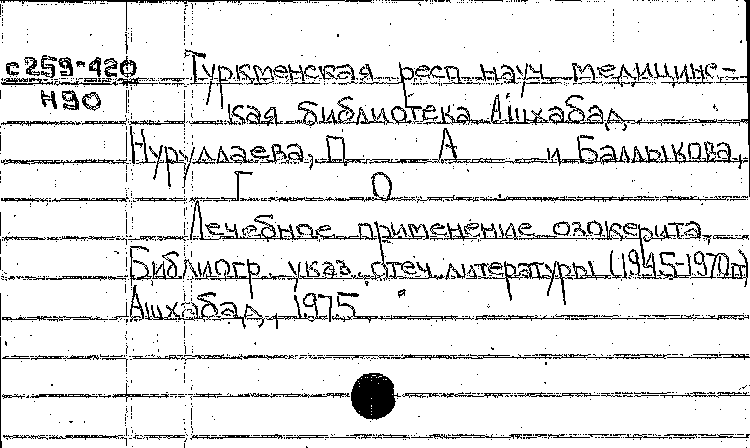 с259-420 Туркменская респ науч медицинс-
Н90 кая библиотека Ашхабад
Нуруллаева, П А и Баллыкова,
Г О
Лечебное применение озокерита.
Библиогр. указ. отеч. литературы (1945-1970гг)
Ашхабад, 1975.